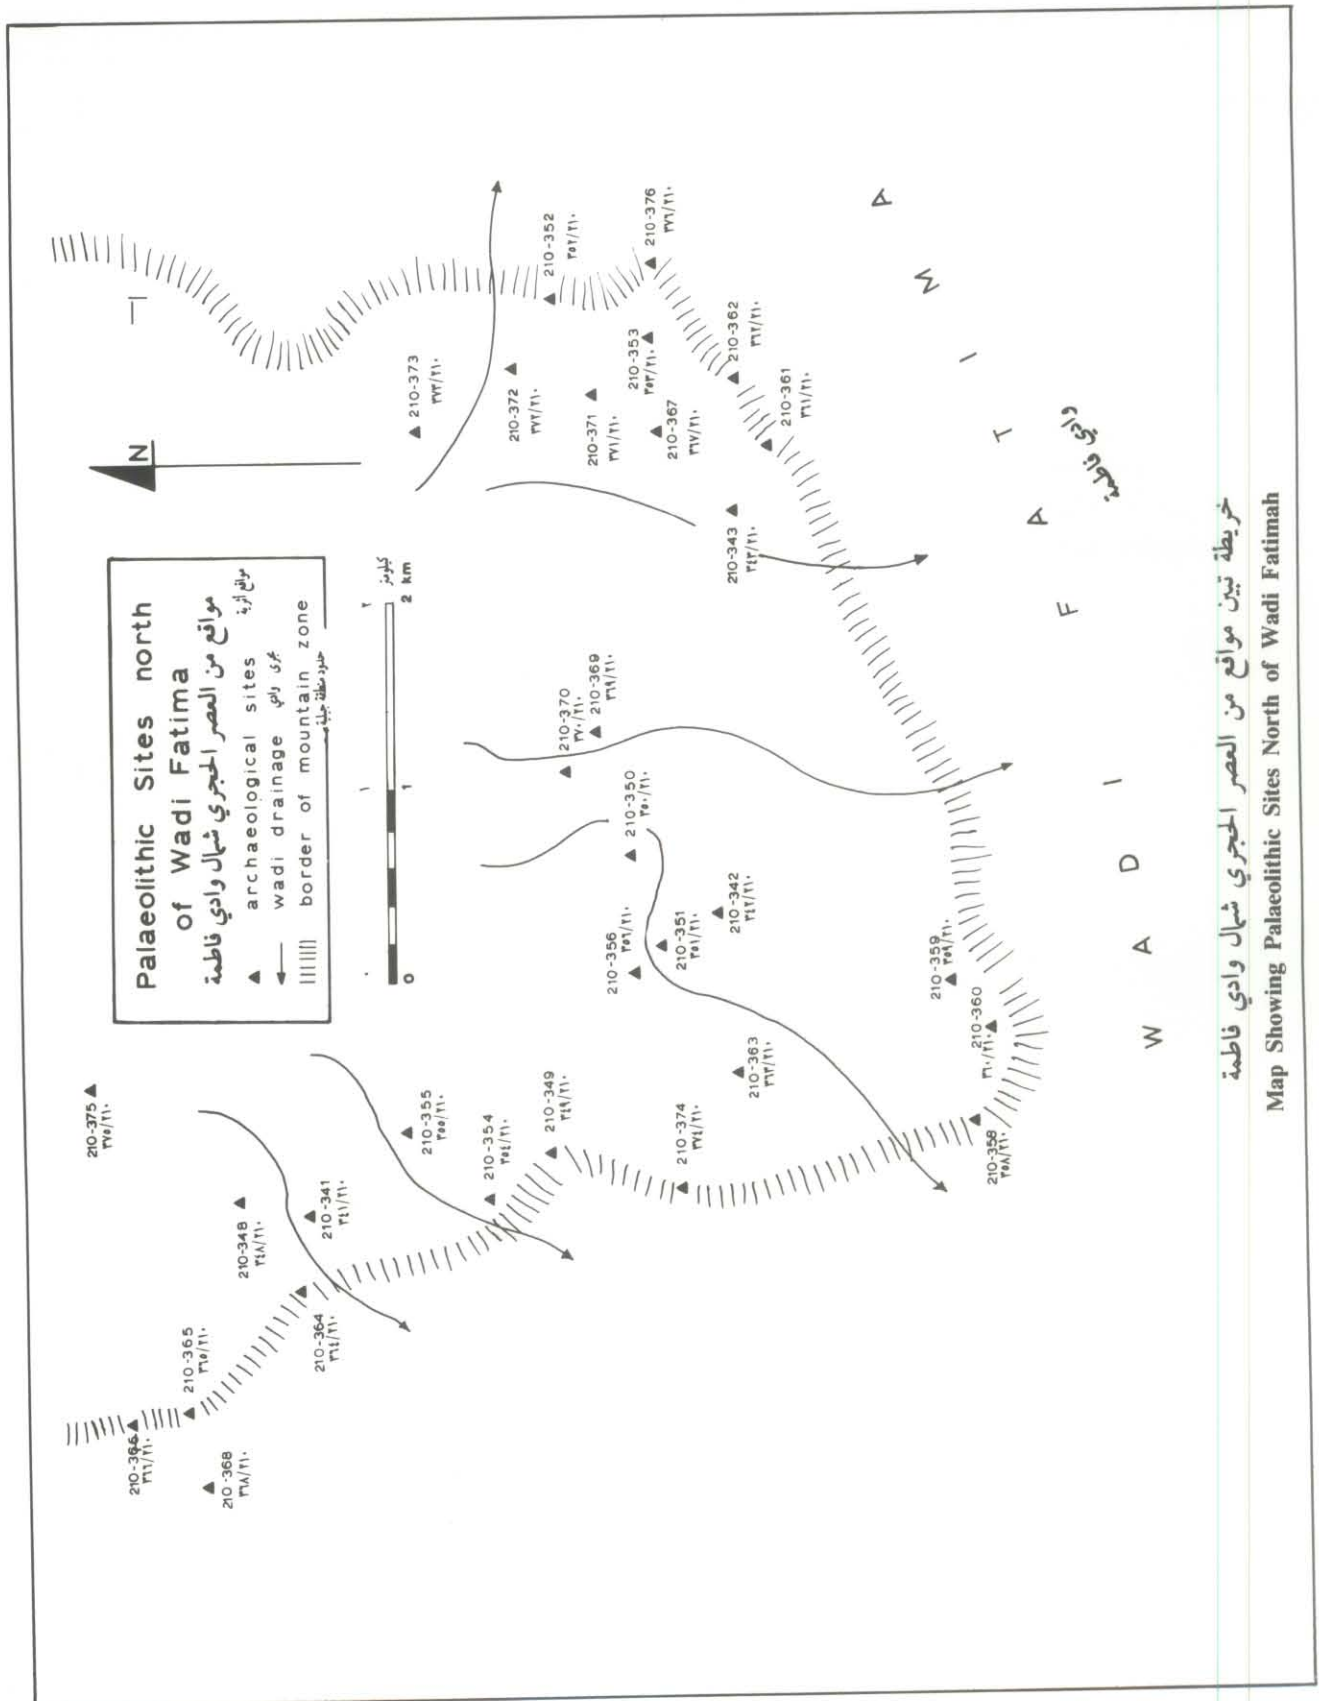 Palaeolithic Sites north
of Wadi Fatima
مواقع من العصر الحجري شمال وادي فاطمة
archaeological sites مواقع أثرية
wadi drainage مجرى وادي
border of mountain zone
حدود منطقة جبلية
٠ ١ ٢ كيلومتر
0 1 2 km
N
210-375
٣٧٥/٢١٠
210-366
٣٦٦/٢١٠
210-365
٣٦٥/٢١٠
210-368
٣٦٨/٢١٠
210-348
٣٤٨/٢١٠
210-341
٣٤١/٢١٠
210-364
٣٦٤/٢١٠
210-355
٣٥٥/٢١٠
210-354
٣٥٤/٢١٠
210-349
٣٤٩/٢١٠
210-374
٣٧٤/٢١٠
210-363
٣٦٣/٢١٠
210-356
٣٥٦/٢١٠
210-351
٣٥١/٢١٠
210-342
٣٤٢/٢١٠
210-350
٣٥٠/٢١٠
210-370
٣٧٠/٢١٠
210-369
٣٦٩/٢١٠
210-373
٣٧٣/٢١٠
210-372
٣٧٢/٢١٠
210-371
٣٧١/٢١٠
210-352
٣٥٢/٢١٠
210-353
٣٥٣/٢١٠
210-367
٣٦٧/٢١٠
210-376
٣٧٦/٢١٠
210-362
٣٦٢/٢١٠
210-361
٣٦١/٢١٠
210-343
٣٤٣/٢١٠
210-359
٣٥٩/٢١٠
210-360
٣٦٠/٢١٠
210-358
٣٥٨/٢١٠
WADI FATIMA
وادي فاطمة
خريطة تبين مواقع من العصر الحجري شمال وادي فاطمة
Map Showing Palaeolithic Sites North of Wadi Fatimah